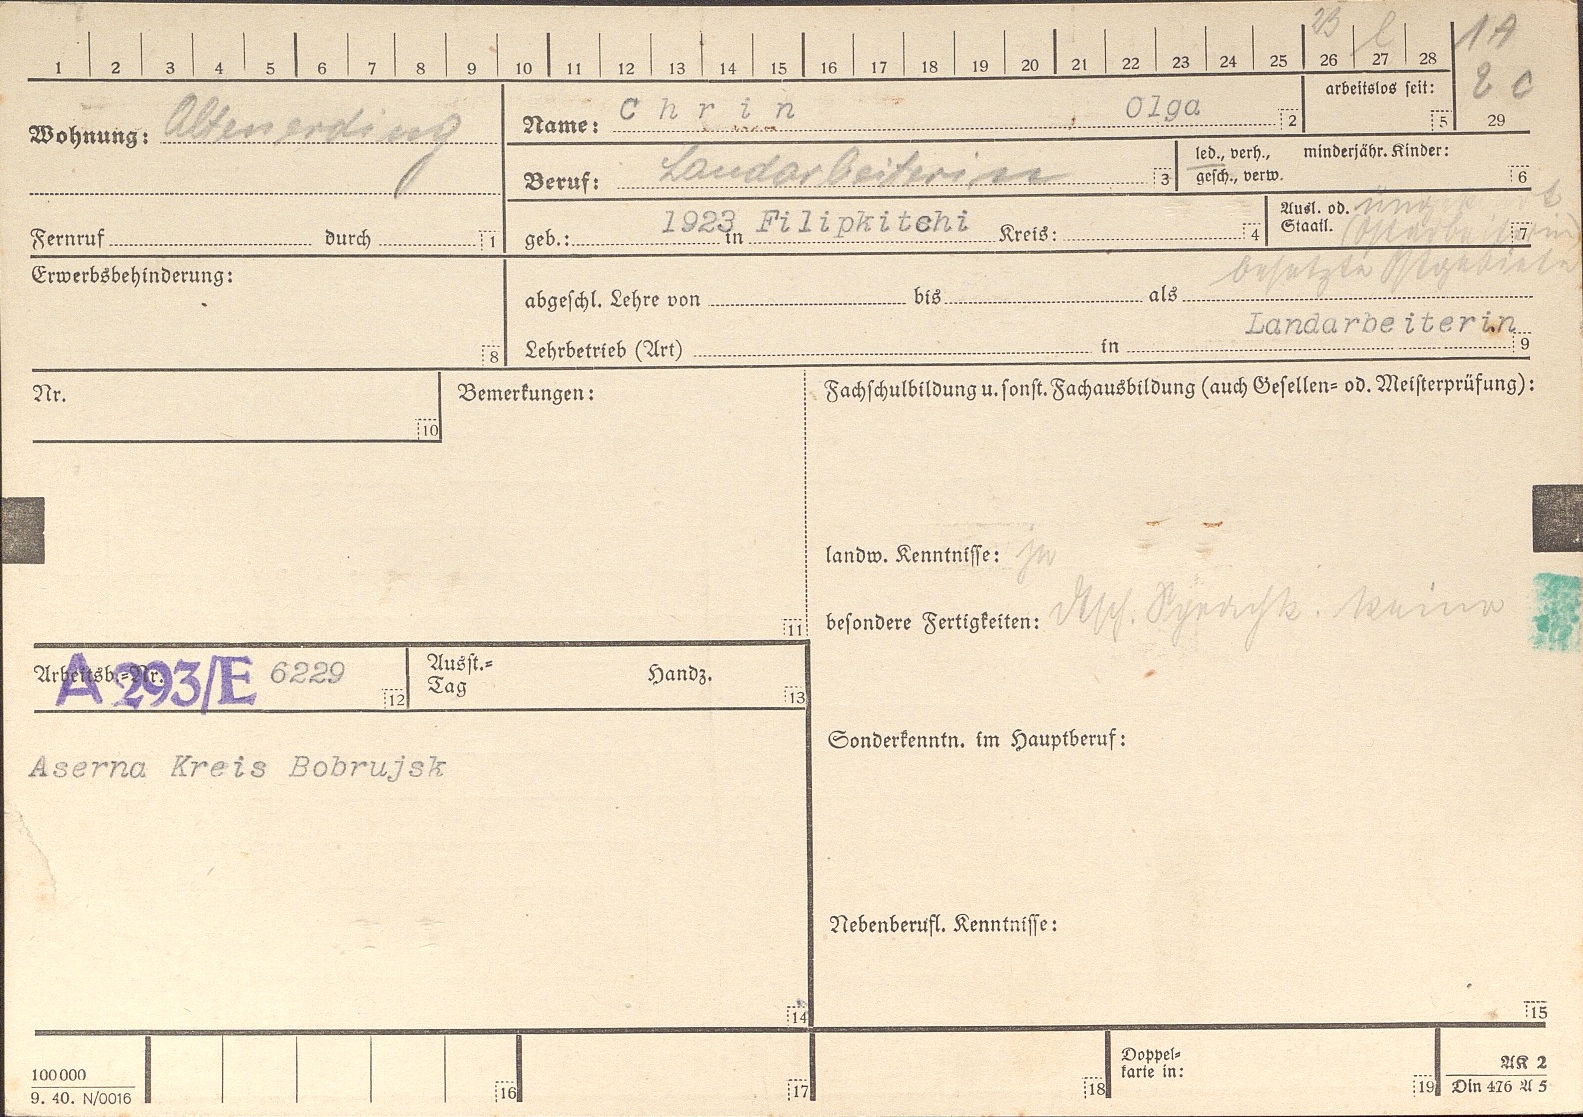 1 2 3 4 5 6 7 8 9 10 11 12 13 14 15 16 17 18 19 20 21 22 23 24 25 26 27 28
1A
2 c
29
Wohnung: Altenerding
Fernruf durch 1
Name: Chrin Olga 2
arbeitslos seit: 5
Beruf: Landarbeiterin 3
led., verh., minderjähr. Kinder:
gesch., verw. 6
geb.: 1923 in Filipkitchi Kreis: 4
Ausl. od.
Staatl. 7
(Ostarbeiterin)
besetzte Ostgebiete
Erwerbsbehinderung:
8
abgeschl. Lehre von bis als
Landarbeiterin
Lehrbetrieb (Art) in 9
Nr.
10
Bemerkungen:
11
Fachschulbildung u. sonst. Fachausbildung (auch Gesellen- od. Meisterprüfung):
landw. Kenntnisse: ja
besondere Fertigkeiten: dtsch. Sprachk. keine
Arbeitsb.-Nr. A 293/E 6229 12
Ausst.- Handz.
Tag 13
Sonderkenntn. im Hauptberuf:
Aserna Kreis Bobrujsk
Nebenberufl. Kenntnisse:
14
15
100000
9. 40. N/0016
16
17
18
Doppel-
karte in: 19
AK 2
Din 476 A 5